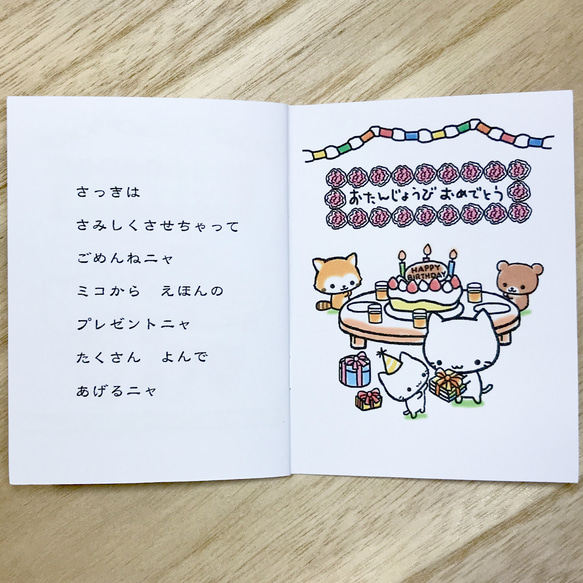 さっきは
さみしくさせちゃって
ごめんねニャ
ミコから　えほんの
プレゼントニャ
たくさん　よんで
あげるニャ
おたんじょうび おめでとう
HAPPY
BIRTHDAY